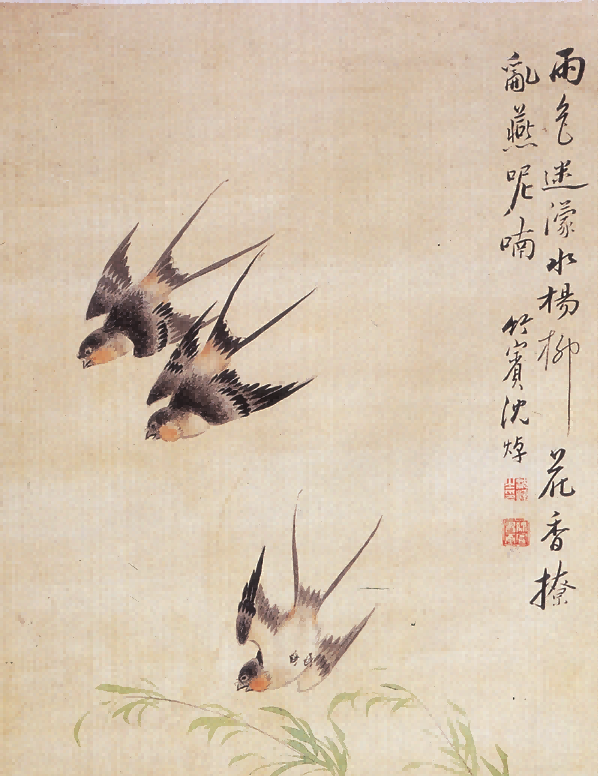 雨色迷濛水楊柳花香撩
亂燕呢喃
竹賓沈焯